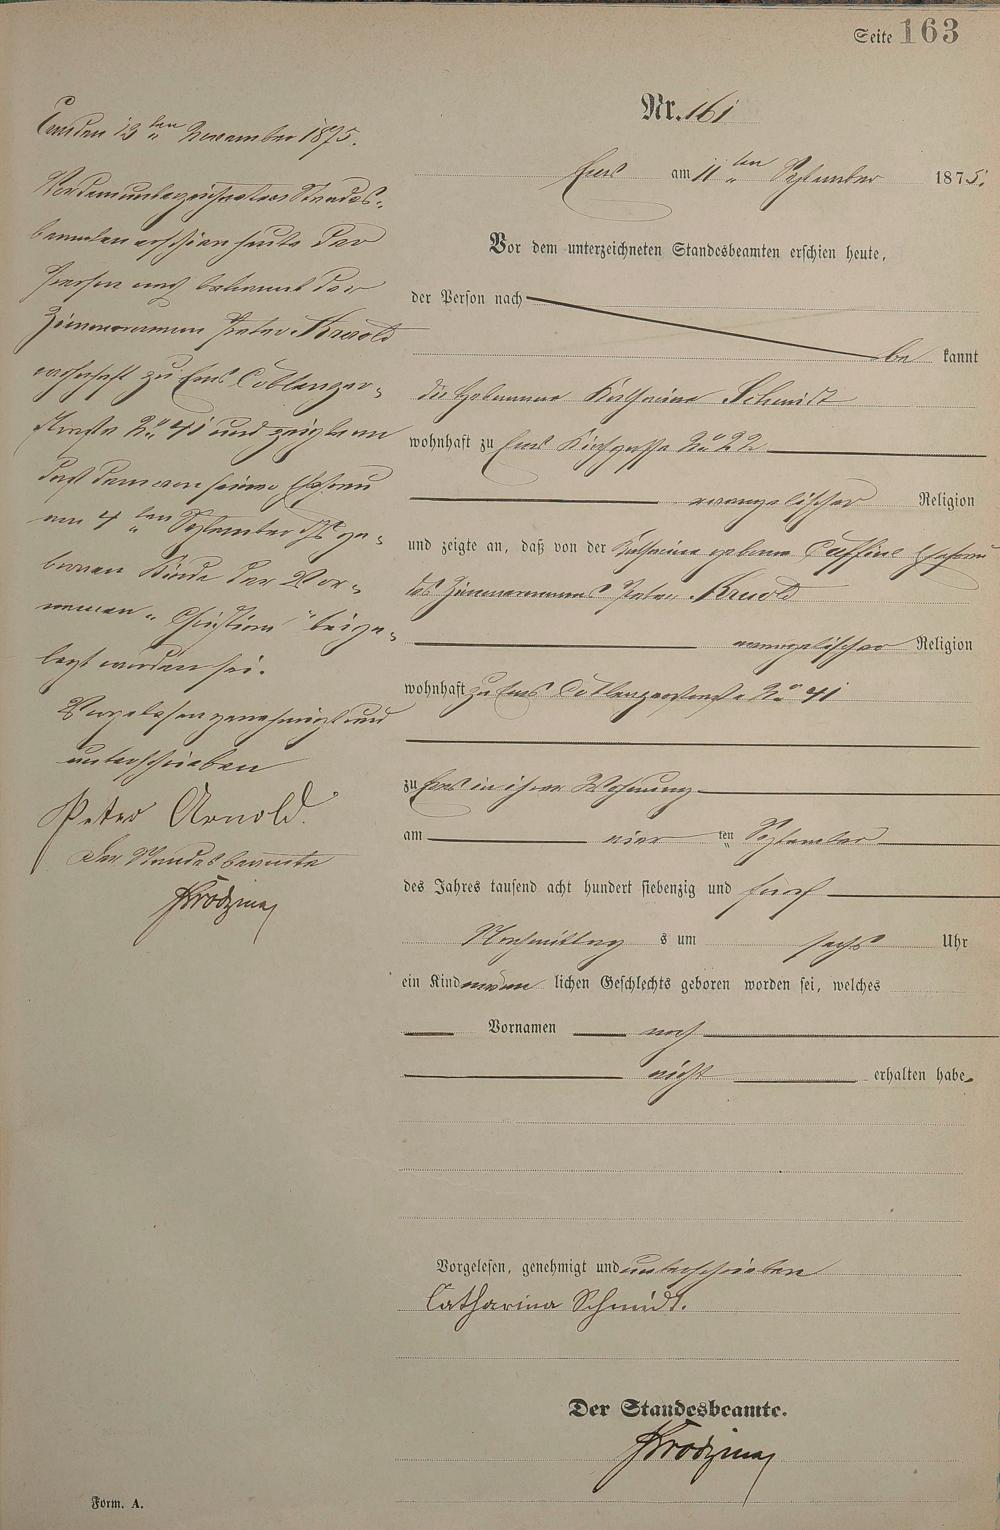 Seite 163
Nr. 161
Ems am 11 ten September 1875.
Vor dem unterzeichneten Standesbeamten erschien heute,
der Person nach
be kannt
die Hebamme Katharina Schmidt
wohnhaft zu Ems Kirchgasse No 22
evangelischer Religion
und zeigte an, daß von der Katharina geborne Ehefrau
des Zimmermanns Peter Arnold
evangelischer Religion
wohnhaft zu Ems Coblenzerstraße No 41
zu Ems in ihrer Wohnung
am vier ten September
des Jahres tausend acht hundert siebenzig und fünf
Nachmittag s um sechs Uhr
ein Kind männ lichen Geschlechts geboren worden sei, welches
Vornamen noch
nicht erhalten habe.
Vorgelesen, genehmigt und unterschrieben
Catharina Schmidt.
Der Standesbeamte.
Form. A.
Ems den 13 ten November 1875.
Vor dem unterzeichneten Standes-
beamten erschien heute der
Person nach bekannt der
Zimmermann Peter Arnold
wohnhaft zu Ems Coblenzer-
straße No 41 und zeigte an
daß dem von seiner Ehefrau
am 4 ten September ds Js ge-
bornen Kinde der Vor-
namen "Christian" beige-
legt worden sei.
Vorgelesen genehmigt und
unterschrieben
Peter Arnold.
Der Standesbeamte